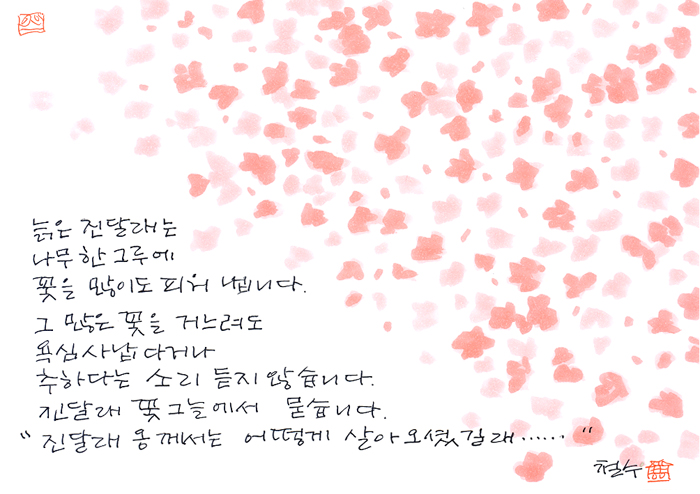 늙은 진달래는
나무 한 그루에
꽃을 많이도 피워 냅니다.
그 많은 꽃을 거느려도
욕심사납다거나
추하다는 소리 듣지 않습니다.
진달래 꽃그늘에서 묻습니다.
“진달래 옹께서는 어떻게 살아오셨길래……”
철수